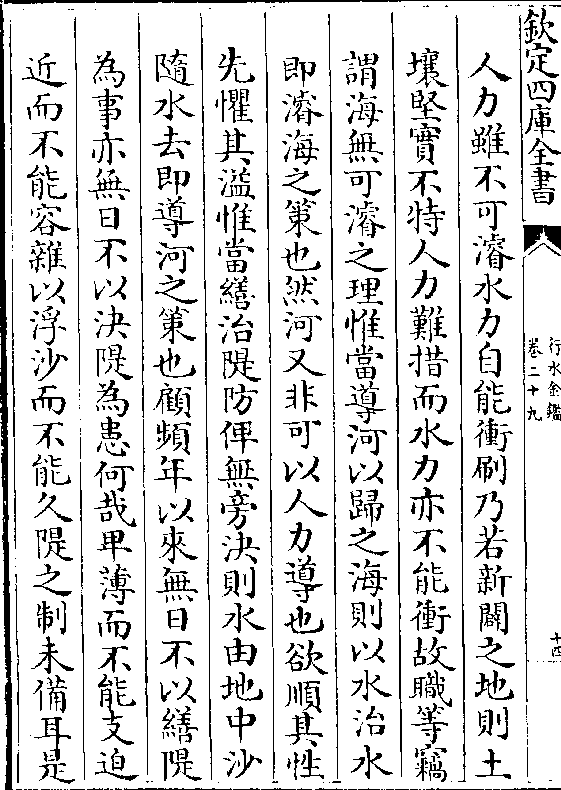 欽定四庫全書
行水金鑑
卷二十九
十四
人力雖不可濬水力自能衝刷乃若新闢之地則土
壤堅實不特人力難措而水力亦不能衝故職等竊
謂海無可濬之理惟當導河以歸之海則以水治水
即濬海之策也然河又非可以人力導也欲順其性
先懼其溢惟當繕治隄防俾無旁決則水由地中沙
隨水去即導河之策也顧頻年以來無日不以繕隄
為事亦無日不以決隄為患何哉卑薄而不能支迫
近而不能容雜以浮沙而不能久隄之制未備耳是